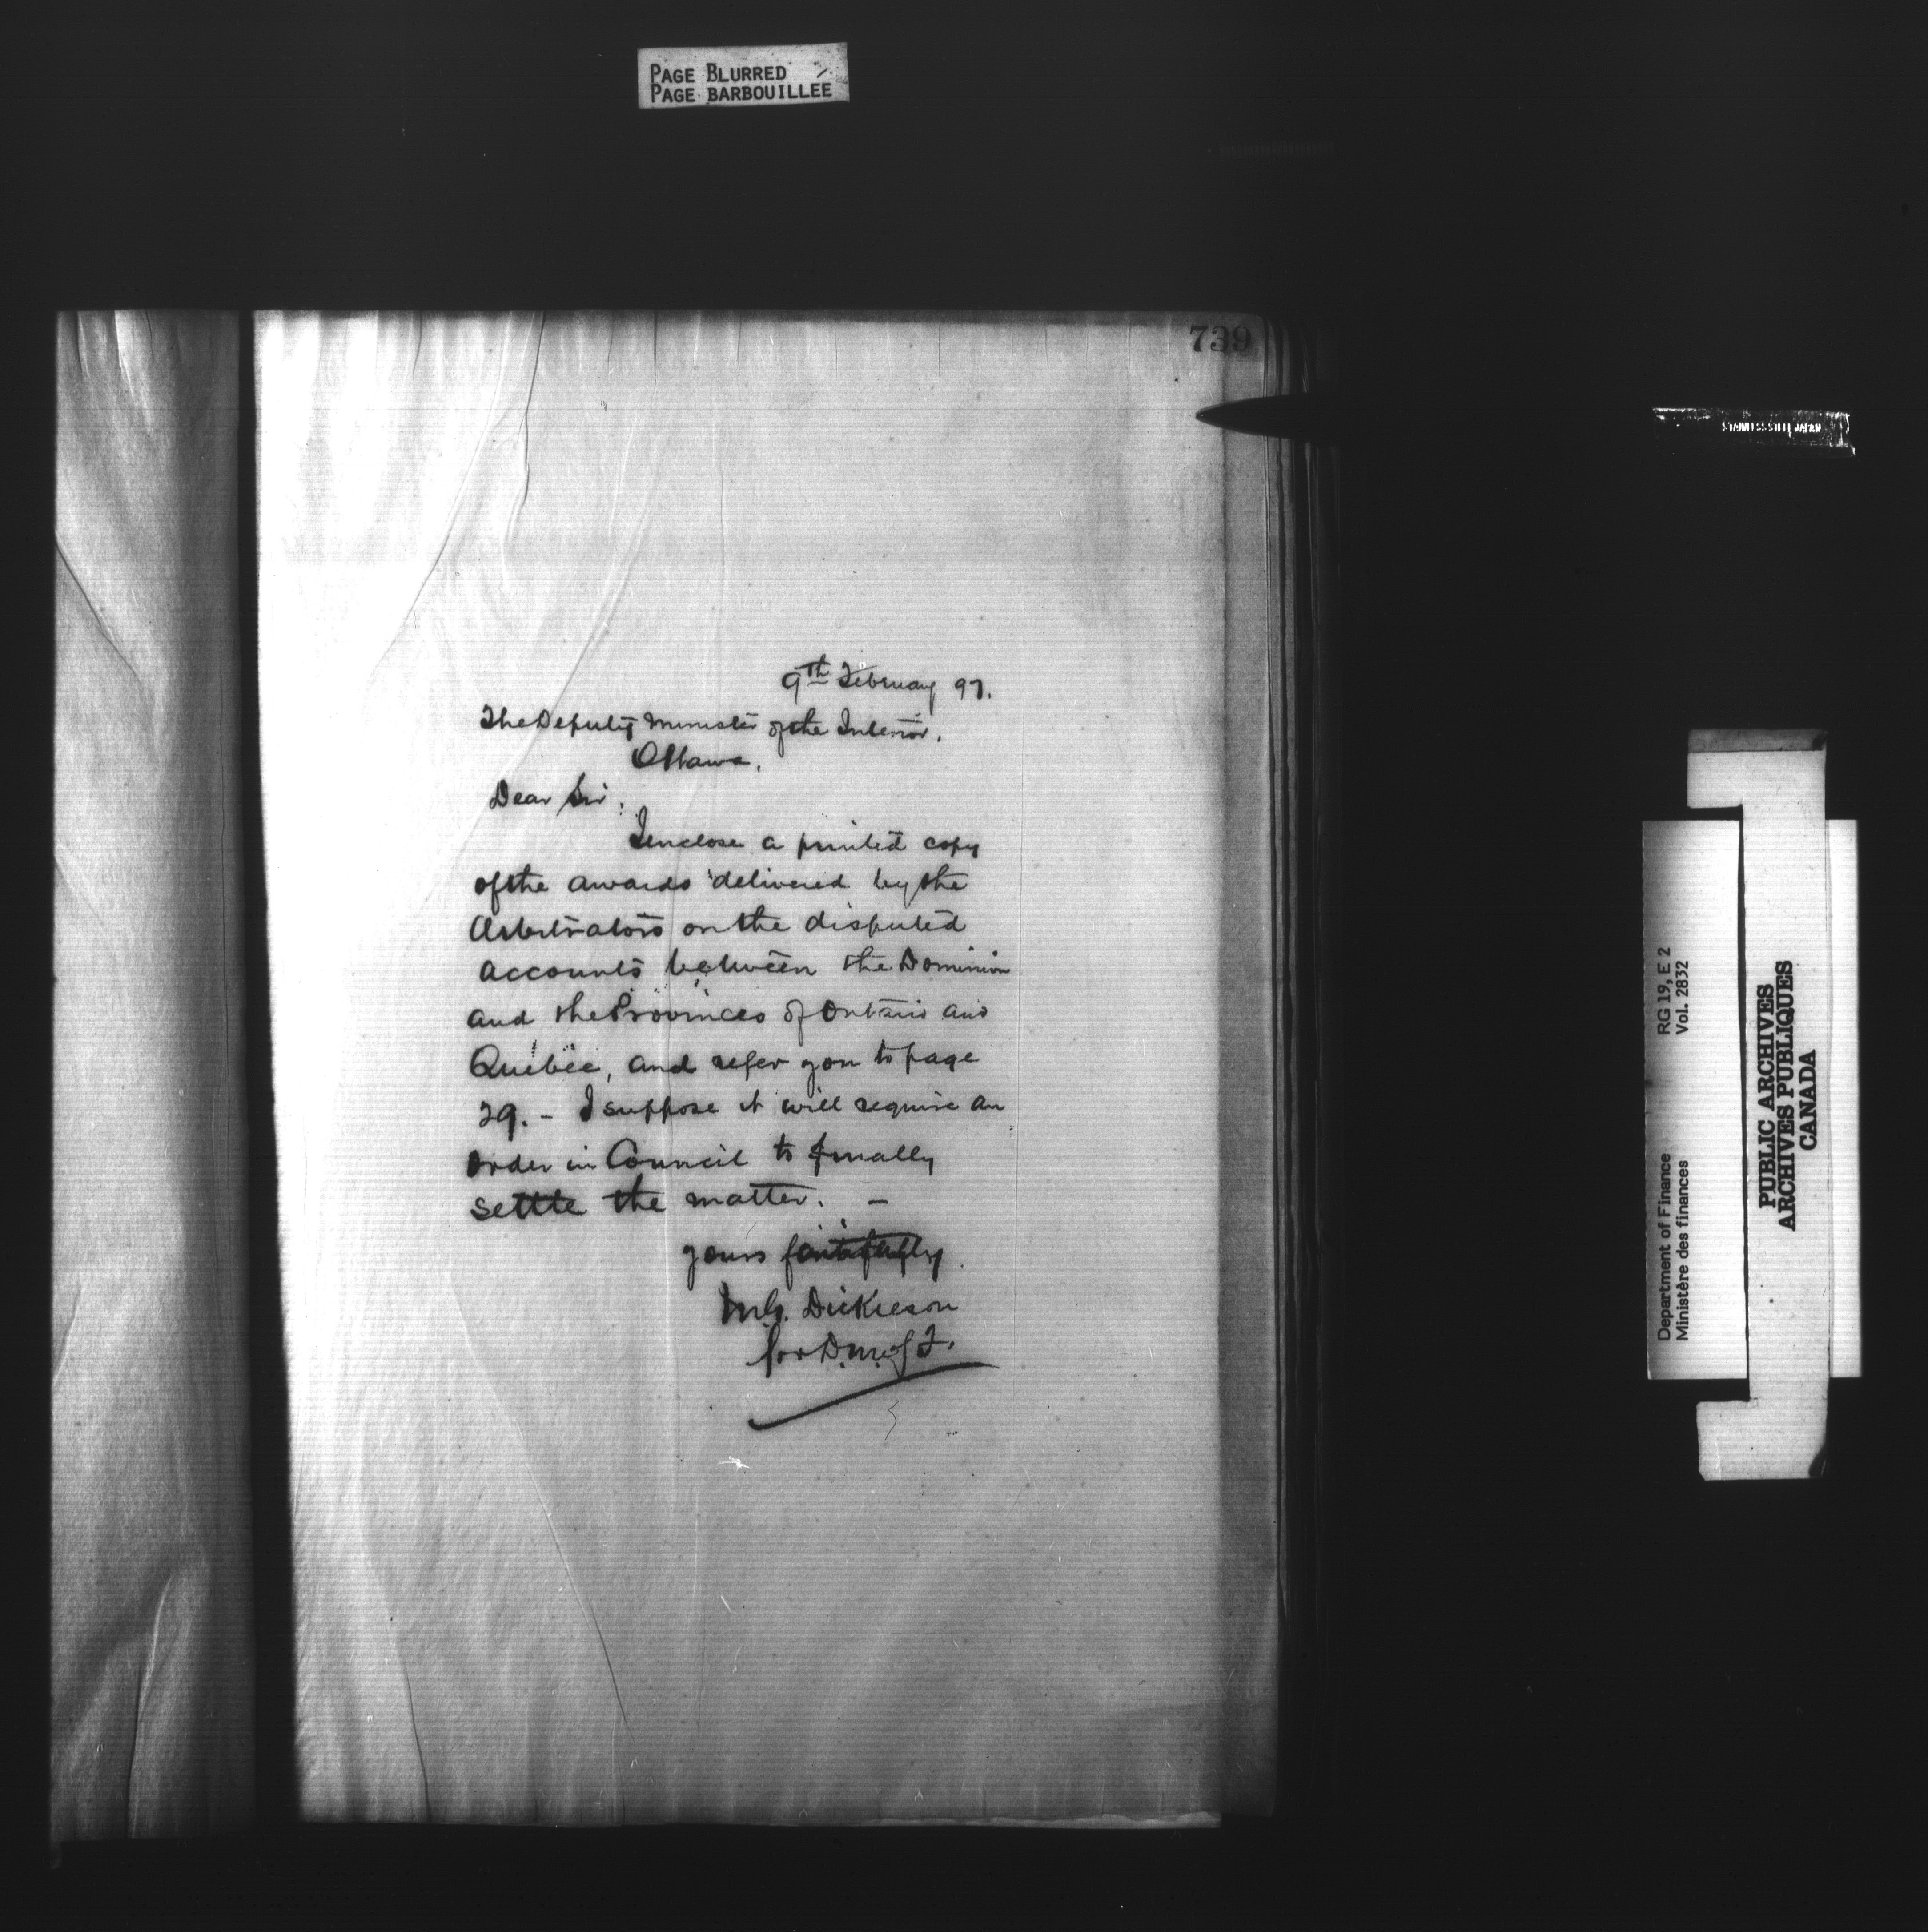 PAGE BLURRED
PAGE BARBOUILLÉE
739
9th February 97.
The Deputy Minister of the Interior,
Ottawa,
Dear Sir:
I enclose a printed copy
of the awards delivered by the
Arbitrators on the disputed
accounts between the Dominion
and the Provinces of Ontario and
Quebec, and refer you to page
29. - I suppose it will require an
order in Council to finally
settle the matter. -
yours faithfully
M.G. Dickieson
for D.M. of F.
STAINLESS STEEL JAPAN
Department of Finance RG 19, E 2
Ministère des finances Vol. 2832
PUBLIC ARCHIVES
ARCHIVES PUBLIQUES
CANADA